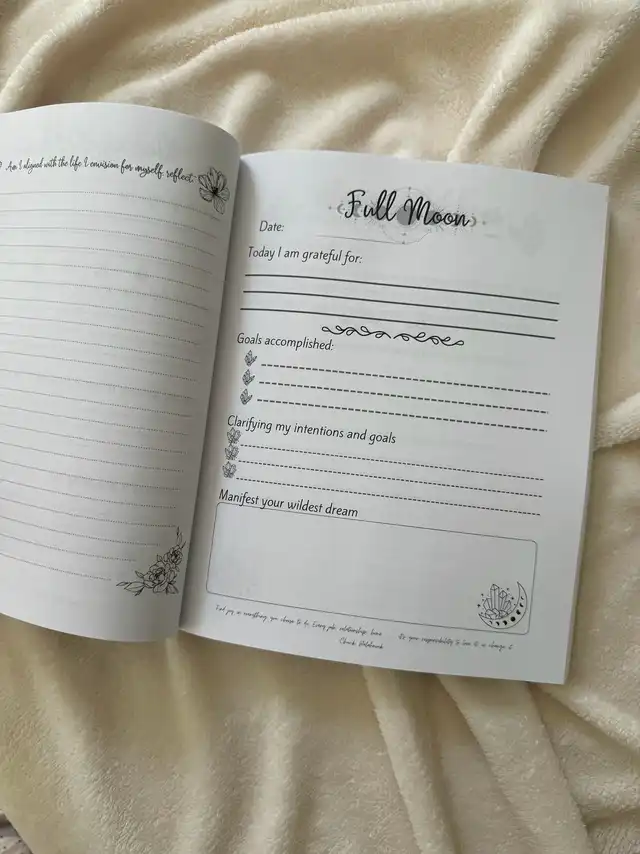 Am I aligned with the life I envision for myself, reflect:
Full Moon
Date:
Today I am grateful for:
Goals accomplished:
Clarifying my intentions and goals
Manifest your wildest dream
Find joy in everything you choose to do. Every job, relationship, home
it's your responsibility to love it or change it
Chuck Palahniuk